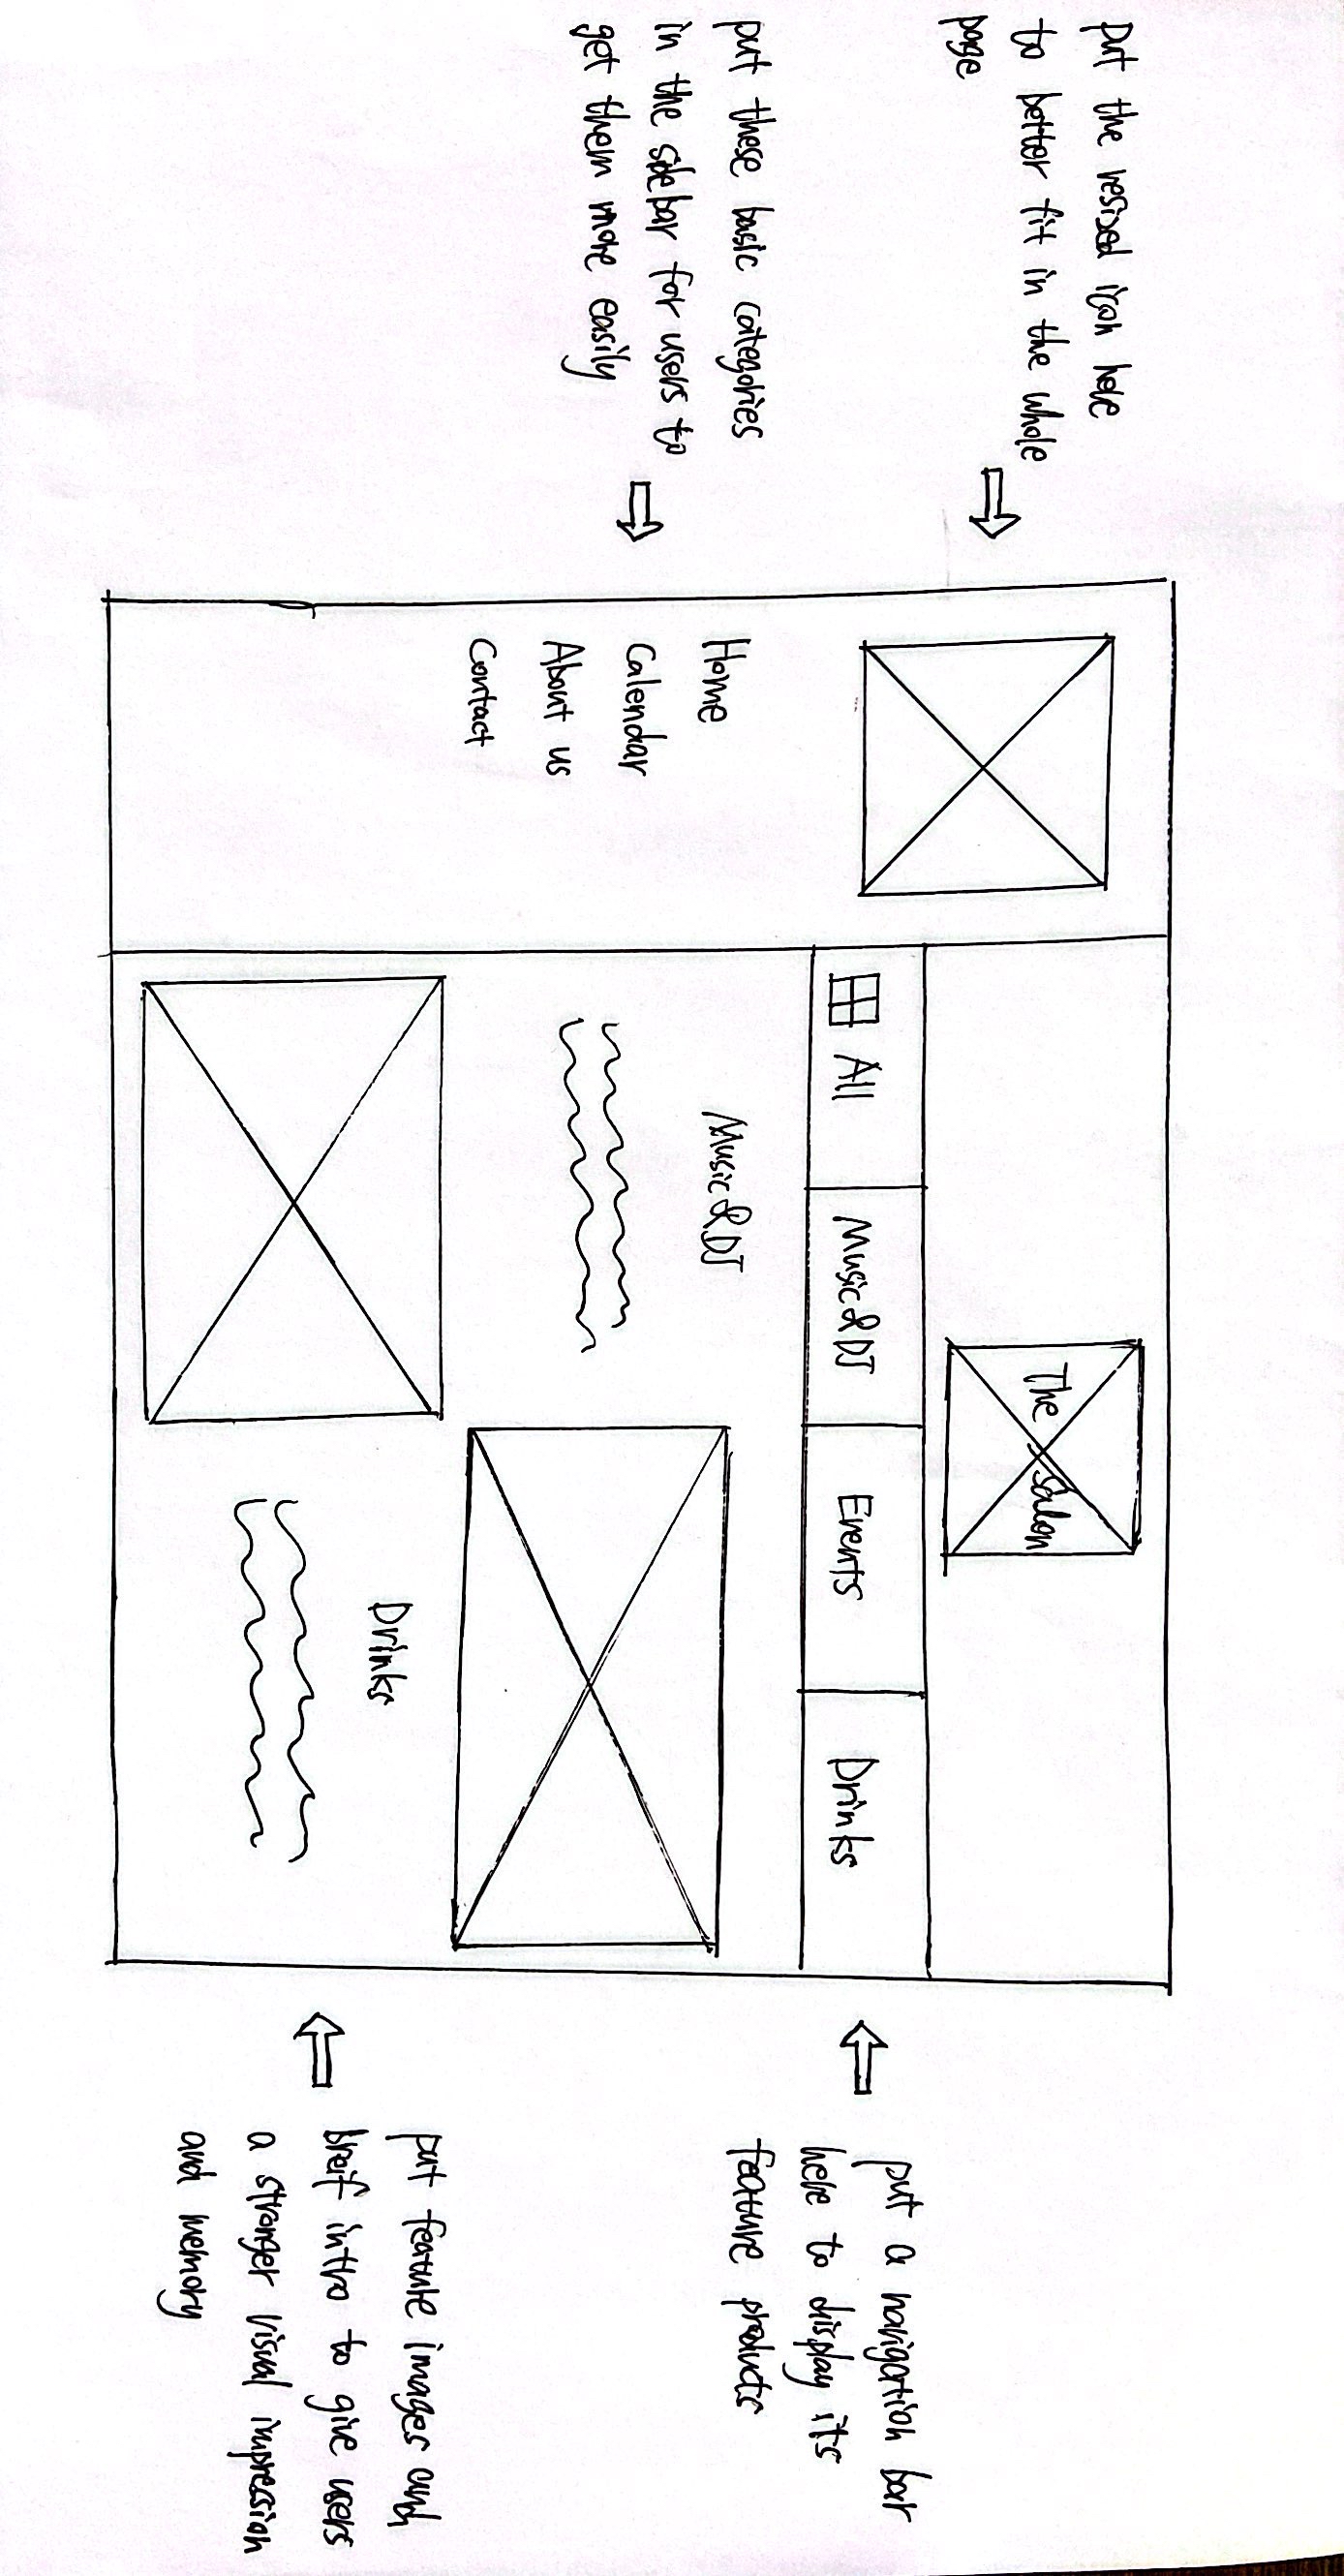 put the resized icon here
to better fit in the whole
page
put these basic categories
in the sidebar for users to
get them more easily
Home
Calendar
About us
Contact
The Salon
All
Music&DJ
Events
Drinks
Music&DJ
Drinks
put a navigation bar
here to display its
feature products
put feature images and
breif intro to give users
a stronger visual impression
and memory